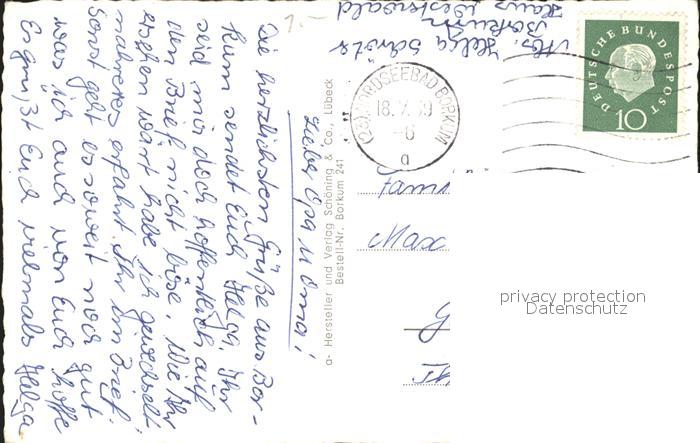 Abs. Helga Schröter
Borkum
Haus Westerwald
DEUTSCHE BUNDESPOST
10
(23) NORDSEEBAD BORKUM
18.
a
1.-
Lieber Opa u. Oma!
Die herzlichsten Grüße aus Bor-
kum sendet Euch Helga. Ihr
seid mir doch hoffentlich auf
den Brief nicht böse. Wie Ihr
ersehen habe ich gewechselt
erfahrt Ihr im Brief.
Sonst geht es soweit noch gut
was ich auch von Euch hoffe
Es grüßt Euch vielmals Helga
a- Hersteller und Verlag Schöning & Co., Lübeck
Bestell-Nr. Borkum 241
Max
privacy protection
Datenschutz